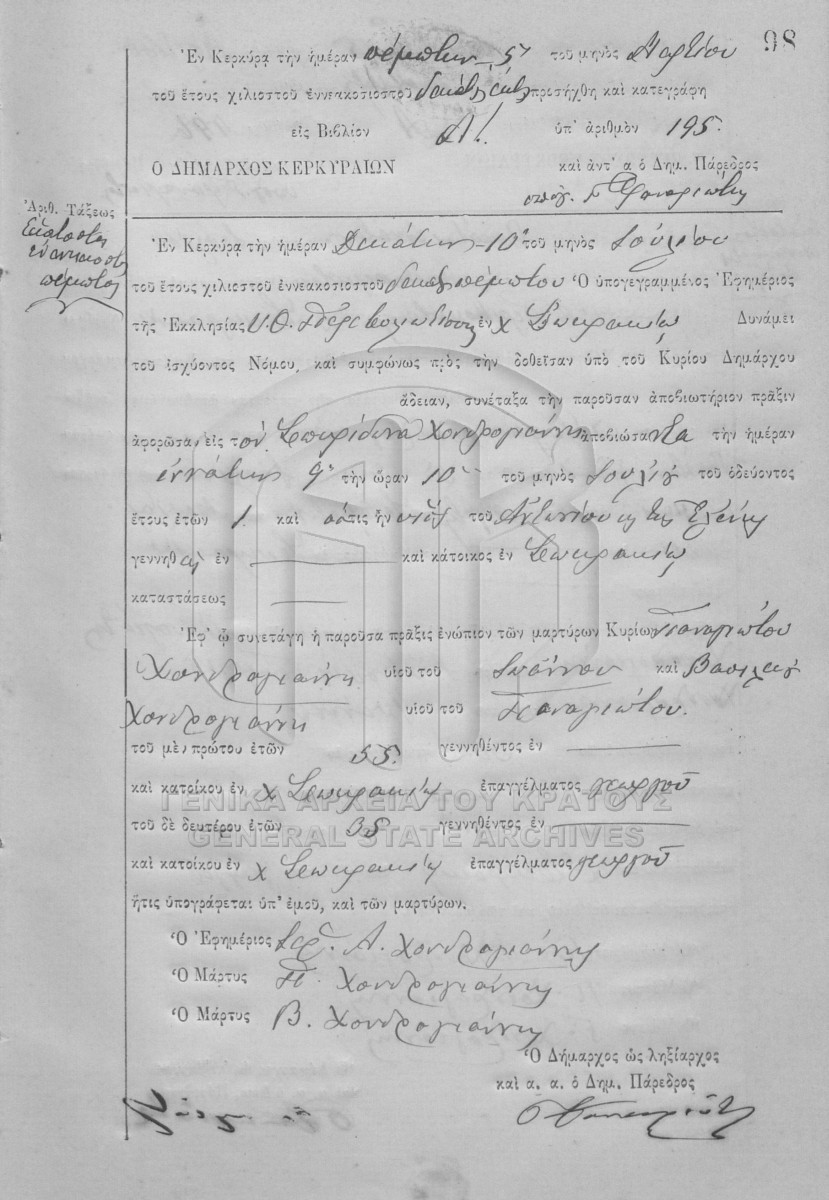 98
Ἐν Κερκύρᾳ τὴν ἡμέραν πέμπτην 5ῃ τοῦ μηνὸς Μαρτίου
τοῦ ἔτους χιλιοστοῦ ἐννεακοσιοστοῦ προσήχθη καὶ κατεγράφη
εἰς Βιβλίον Α'. ὑπ' ἀριθμὸν 195.
Ὁ ΔΗΜΑΡΧΟΣ ΚΕΡΚΥΡΑΙΩΝ καὶ ἀντ' α ὁ Δημ. Πάρεδρος
Ἀριθ. Τάξεως
Ἑκατοστὴ
ἐνενηκοστὴ
πέμπτη
Ἐν Κερκύρᾳ τὴν ἡμέραν Δεκάτην 10 τοῦ μηνὸς Ἰουλίου
τοῦ ἔτους χιλιοστοῦ ἐννεακοσιοστοῦ δεκάτου πέμπτου Ὁ ὑπογεγραμμένος Ἐφημέριος
τῆς Ἐκκλησίας Υ. Θ. ἐν χ Σωκρακίῳ Δυνάμει
τοῦ ἰσχύοντος Νόμου, καὶ συμφώνως πρὸς τὴν δοθεῖσαν ὑπὸ τοῦ Κυρίου Δημάρχου
ἄδειαν, συνέταξα τὴν παροῦσαν ἀποβιωτήριον πρᾶξιν
ἀφορῶσαν εἰς τὸν Σπυρίδωνα Χονδρογιάννην ἀποβιώσαντα τὴν ἡμέραν
ἐννάτην 9ῃ τὴν ὥραν 10 τοῦ μηνὸς Ἰουλίου τοῦ ὁδεύοντος
ἔτους ἐτῶν 1 καὶ ὅστις ἦν υἱὸς τοῦ Ἀντωνίου κ τῆς Ἑλένης
γεννηθεὶς ἐν καὶ κάτοικος ἐν Σωκρακίῳ
καταστάσεως
Ἐφ' ᾧ συνετάγη ἡ παροῦσα πρᾶξις ἐνώπιον τῶν μαρτύρων Κυρίων Παναγιώτου
Χονδρογιάννη υἱοῦ τοῦ Ἰωάννου καὶ Βασιλείου
Χονδρογιάννη υἱοῦ τοῦ Παναγιώτου.
τοῦ μὲν πρώτου ἐτῶν 55. γεννηθέντος ἐν
καὶ κατοίκου ἐν χ Σωκρακίῳ ἐπαγγέλματος γεωργοῦ
ΓΕΝΙΚΑ ΑΡΧΕΙΑ ΤΟΥ ΚΡΑΤΟΥΣ
τοῦ δὲ δευτέρου ἐτῶν 35 γεννηθέντος ἐν
GENERAL STATE ARCHIVES
καὶ κατοίκου ἐν χ Σωκρακίῳ ἐπαγγέλματος γεωργοῦ
ἥτις ὑπογράφεται ὑπ' ἐμοῦ, καὶ τῶν μαρτύρων.
Ὁ Ἐφημέριος Ἱερ. Α. Χονδρογιάννης
Ὁ Μάρτυς Π. Χονδρογιάννης
Ὁ Μάρτυς Β. Χονδρογιάννης
Ὁ Δήμαρχος ὡς ληξίαρχος
καὶ α. α. ὁ Δημ. Πάρεδρος